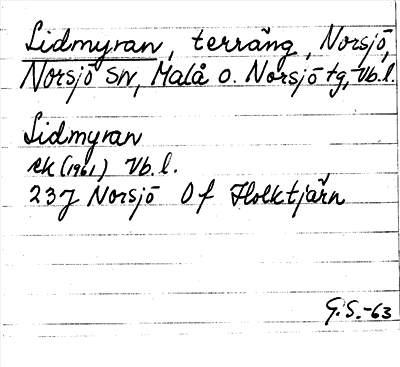 Lidmyran, terräng, Norsjö,
Norsjö sn, Malå o. Norsjö tg, Vb.l.
Lidmyran
ek (1961) Vb.l.
23J Norsjö 0f Holktjärn
G.S.-63